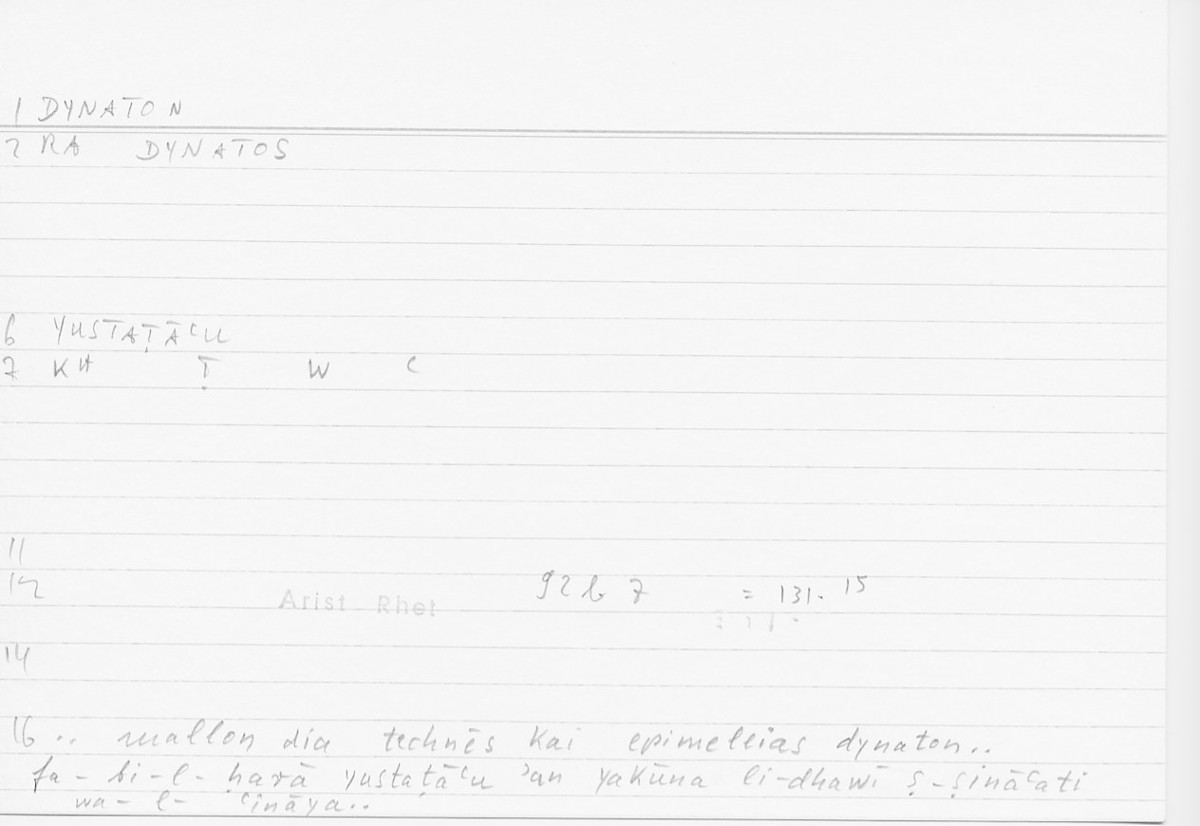 1 DYNATON
2 RA DYNATOS
6 YUSTAṬĀʿU
7 KH Ṭ W ʿ
11
12
Arist Rhet 92 b 7 = 131. 15
14
16 .. mallon dia technēs kai epimeleias dynaton..
fa-bi-l-ḥarā yustaṭāʿu ʾan yakūna li-dhawī ṣ-ṣināʿati
wa-l-ʿināya..